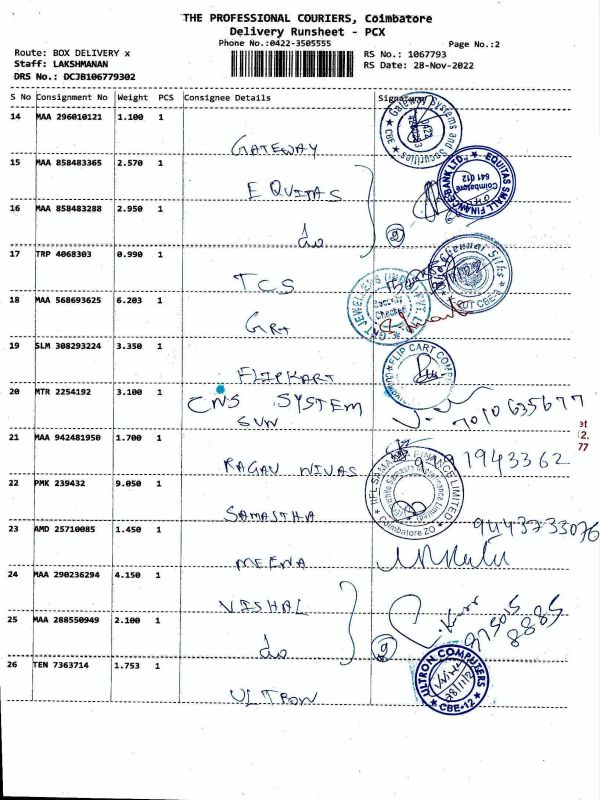 THE PROFESSIONAL COURIERS, Coimbatore
Delivery Runsheet - PCX
Phone No.:0422-3505555
Page No.:2
Route: BOX DELIVERY x
RS No.: 1067793
Staff: LAKSHMANAN
RS Date: 28-Nov-2022
DRS No.: DCJB106779302
S No Consignment No Weight PCS Consignee Details Signature
14 MAA 296010121 1.100 1
GATEWAY
Gateway Systems and Securities CBE
15 MAA 858483365 2.570 1
EQUITAS
EQUITAS SMALL FINANCE BANK LTD. Coimbatore 641 012
16 MAA 858483288 2.950 1
do
17 TRP 4068303 0.990 1
TCS
Chennai Silks CBE
18 MAA 568693625 6.203 1
GRT
GRT JEWELLERS Security Checked
19 SLM 308293224 3.350 1
FLIPKART
FLIP CART
20 MTR 2254192 3.100 1
CNS SYSTEM
SUN
7010635677
at
2.
77
21 MAA 942481950 1.700 1
RAGAV NIVAS
1943362
22 PMK 239432 9.050 1
SAMASTHA
IIFL SAMASTA FINANCE LIMITED Coimbatore ZO
23 AMD 25710085 1.450 1
MEENA
9443733076
24 MAA 290236294 4.150 1
VISHAL
25 MAA 288550949 2.100 1
do
8885
26 TEN 7363714 1.753 1
ULTRON
ULTRON COMPUTERS CBE-12